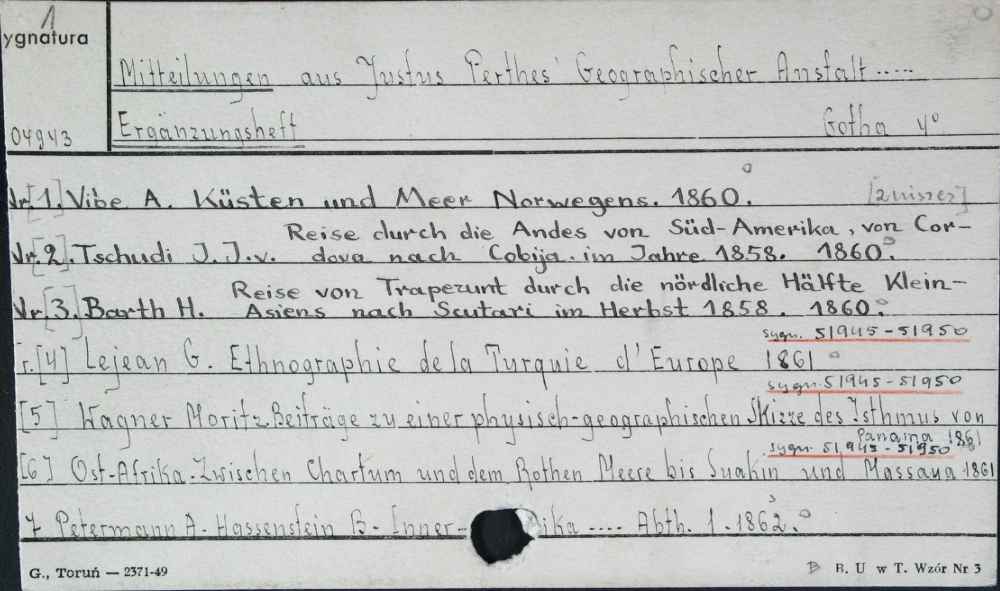 1
ygnatura
Mitteilungen aus Justus Perthes' Geographischer Anstalt .....
04943 Ergänzungsheft Gotha 4°
Nr.[1.] Vibe A. Küsten und Meer Norwegens. 1860.
Reise durch die Andes von Süd-Amerika, von Cor-
Nr.[2]. Tschudi J. J. v. dova nach Cobija. im Jahre 1858. 1860.
Reise von Trapezunt durch die nördliche Hälfte Klein-
Nr.[3.] Barth H. Asiens nach Scutari im Herbst 1858. 1860.
sygn. 51945-51950
r.[4] Lejean G. Ethnographie de la Turquie d'Europe 1861
sygn. 51945-51950
[5] Wagner Moritz Beiträge zu einer physisch-geographischen Skizze des Isthmus von
Panama 1861
sygn. 51945-51950
[6] Ost-Afrika. Zwischen Chartum und dem Rothen Meere bis Suakin und Massaua 1861
7. Petermann A. Hassenstein B. Inner- ika .... Abth. 1. 1862.
G., Toruń — 2371-49 B. U w T. Wzór Nr 3